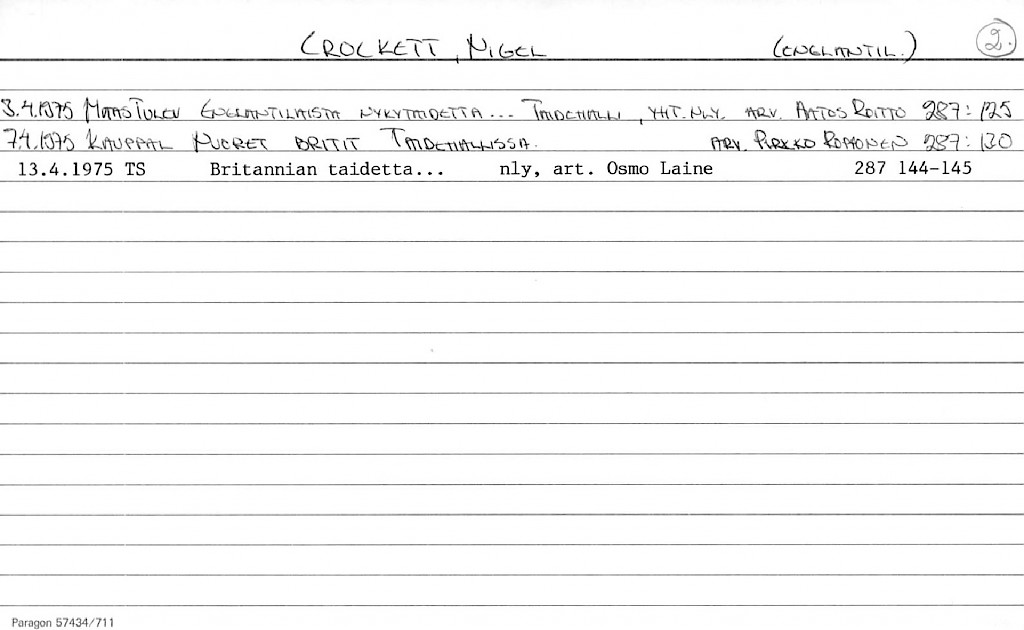 CROCKETT, NIGEL (ENGLANTIL.) 2.
3.4.1975 MAAS TULEV ENGLANTILAISTA NYKYTAIDETTA... TAIDEHALLI, YHT.NLY. ARV. AATOS ROITTO 287: 125
7.4.1975 KAUPPAL NUORET BRITIT TAIDEHALLISSA. ARV. PIRKKO 287: 130
13.4.1975 TS Britannian taidetta... nly, art. Osmo Laine 287 144-145
Paragon 57434/711